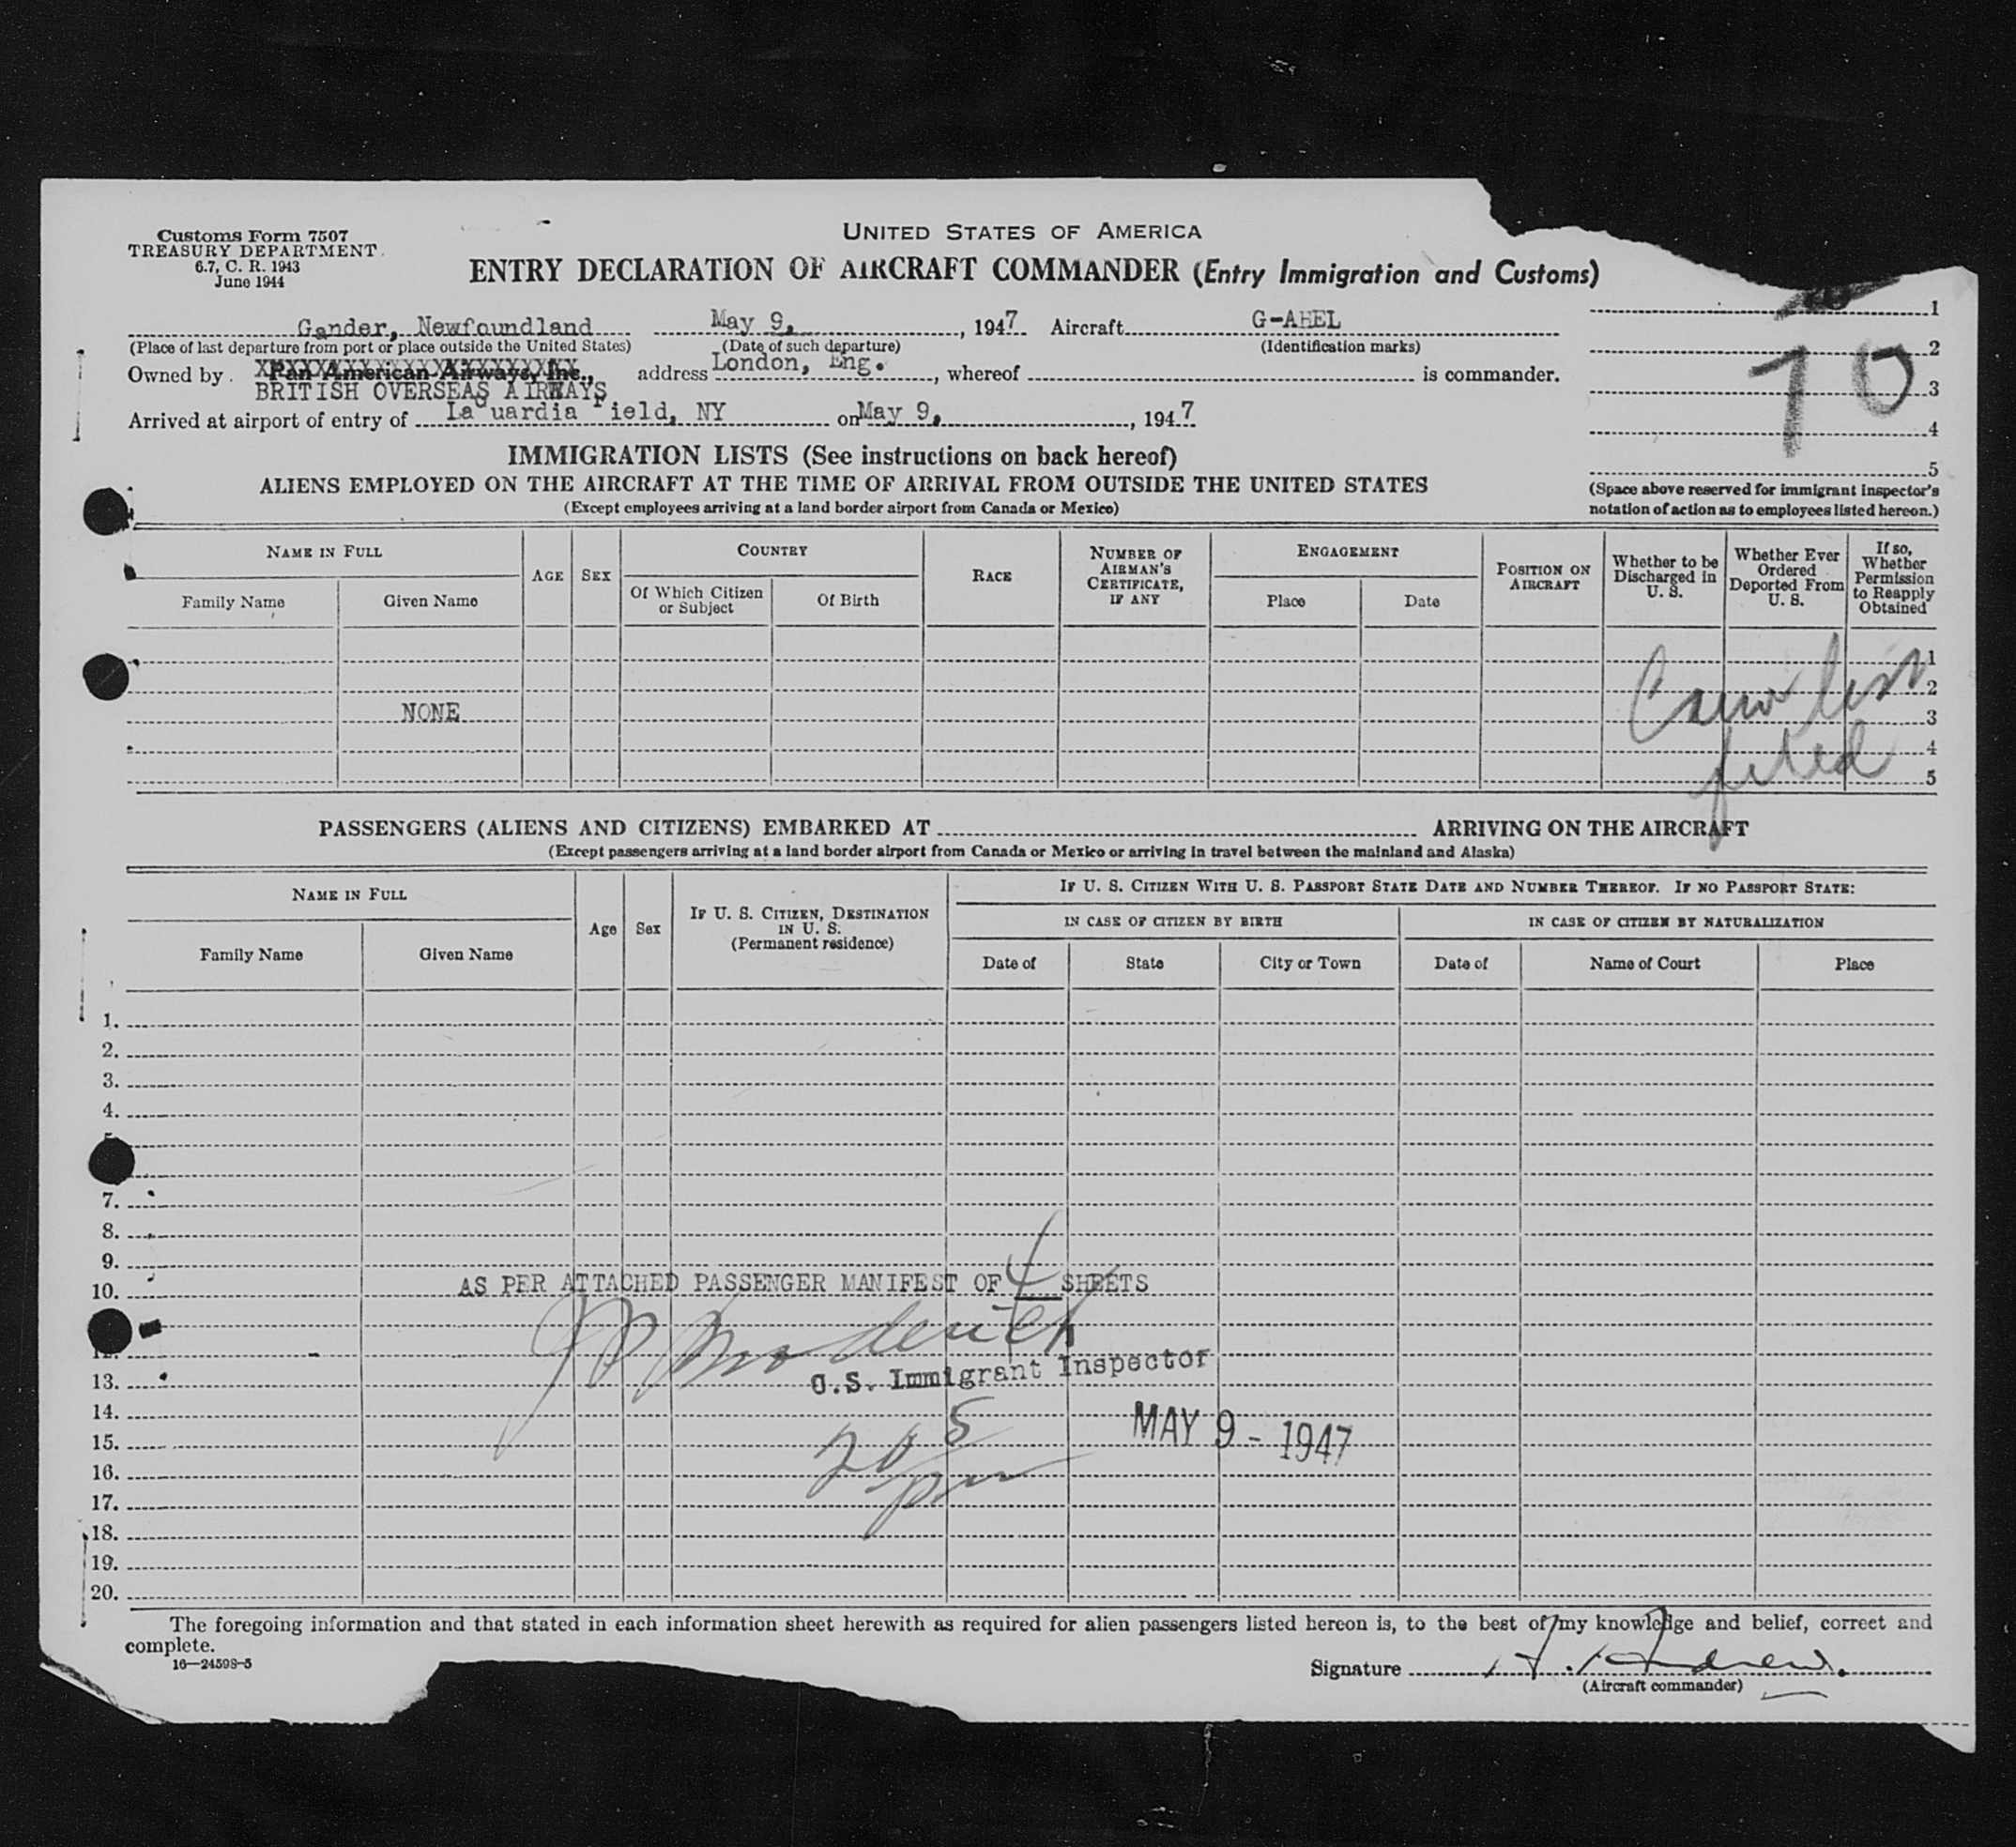 Customs Form 7507
TREASURY DEPARTMENT
6.7, C. R. 1943
June 1944
UNITED STATES OF AMERICA
ENTRY DECLARATION OF AIRCRAFT COMMANDER (Entry Immigration and Customs)
Gander, Newfoundland May 9, , 1947 Aircraft G-AHEL
(Place of last departure from port or place outside the United States) (Date of such departure) (Identification marks)
Owned by Pan American Airways, Inc., address London, Eng. , whereof is commander.
BRITISH OVERSEAS AIRWAYS
Arrived at airport of entry of La uardia ield, NY on May 9, , 1947
1
2
3
4
5
70
(Space above reserved for immigrant inspector's
notation of action as to employees listed hereon.)
IMMIGRATION LISTS (See instructions on back hereof)
ALIENS EMPLOYED ON THE AIRCRAFT AT THE TIME OF ARRIVAL FROM OUTSIDE THE UNITED STATES
(Except employees arriving at a land border airport from Canada or Mexico)
NAME IN FULL
Family Name
Given Name
AGE
SEX
COUNTRY
Of Which Citizen or Subject
Of Birth
RACE
NUMBER OF AIRMAN'S CERTIFICATE, IF ANY
ENGAGEMENT
Place
Date
POSITION ON AIRCRAFT
Whether to be Discharged in U. S.
Whether Ever Ordered Deported From U. S.
If so, Whether Permission to Reapply Obtained
1
2
NONE 3
4
5
Crew list
filed
PASSENGERS (ALIENS AND CITIZENS) EMBARKED AT ARRIVING ON THE AIRCRAFT
(Except passengers arriving at a land border airport from Canada or Mexico or arriving in travel between the mainland and Alaska)
NAME IN FULL
Family Name
Given Name
Age
Sex
IF U. S. CITIZEN, DESTINATION IN U. S.
(Permanent residence)
IF U. S. CITIZEN WITH U. S. PASSPORT STATE DATE AND NUMBER THEREOF. IF NO PASSPORT STATE:
IN CASE OF CITIZEN BY BIRTH
IN CASE OF CITIZEN BY NATURALIZATION
Date of
State
City or Town
Date of
Name of Court
Place
1.
2.
3.
4.
7.
8.
9.
10. AS PER ATTACHED PASSENGER MANIFEST OF 4 SHEETS
12.
U.S. Immigrant Inspector
13.
14.
MAY 9 - 1947
15.
205
pm
16.
17.
18.
19.
20.
The foregoing information and that stated in each information sheet herewith as required for alien passengers listed hereon is, to the best of my knowledge and belief, correct and
complete.
16—24598-5
Signature
(Aircraft commander)